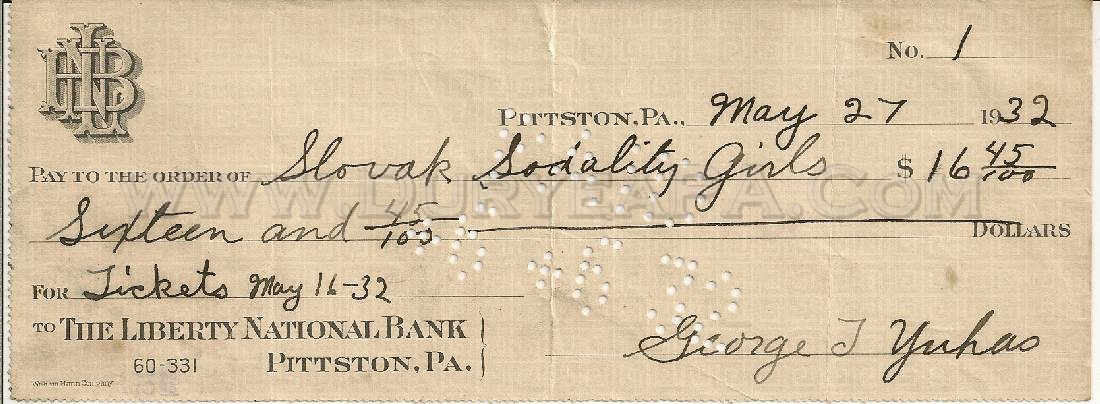 LNB
No. 1
PITTSTON, PA., May 27 1932
PAY TO THE ORDER OF Slovak Sodality Girls $ 16 45/100
WWW.DURYEAPA.COM
Sixteen and 45/100 DOLLARS
FOR Tickets May 16-32
TO THE LIBERTY NATIONAL BANK
60-331 PITTSTON, PA.
George J Yuhas